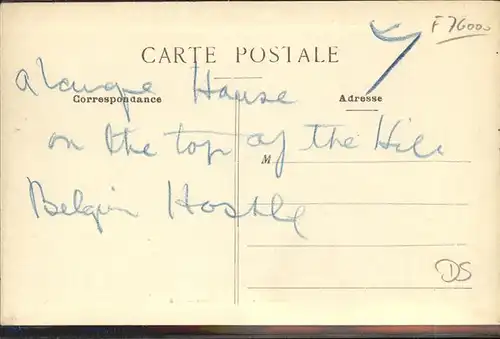 F 76000
CARTE POSTALE
a large House
Correspondance
Adresse
on the top of the Hill
M
Belgin Hostle
DS